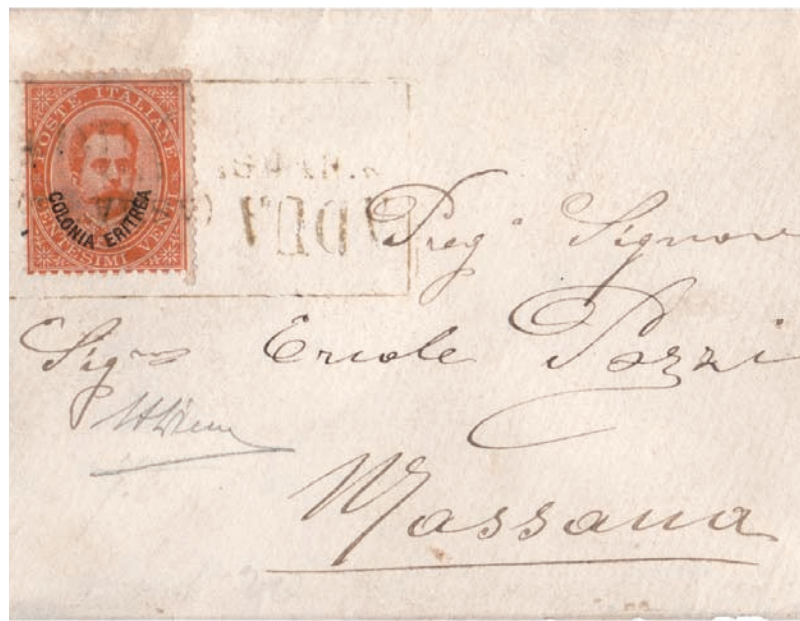 POSTE ITALIANE
COLONIA ERITREA
CENTESIMI VENTI
Preg.º Signore
Sig.re Ercole Pozzi
Massaua